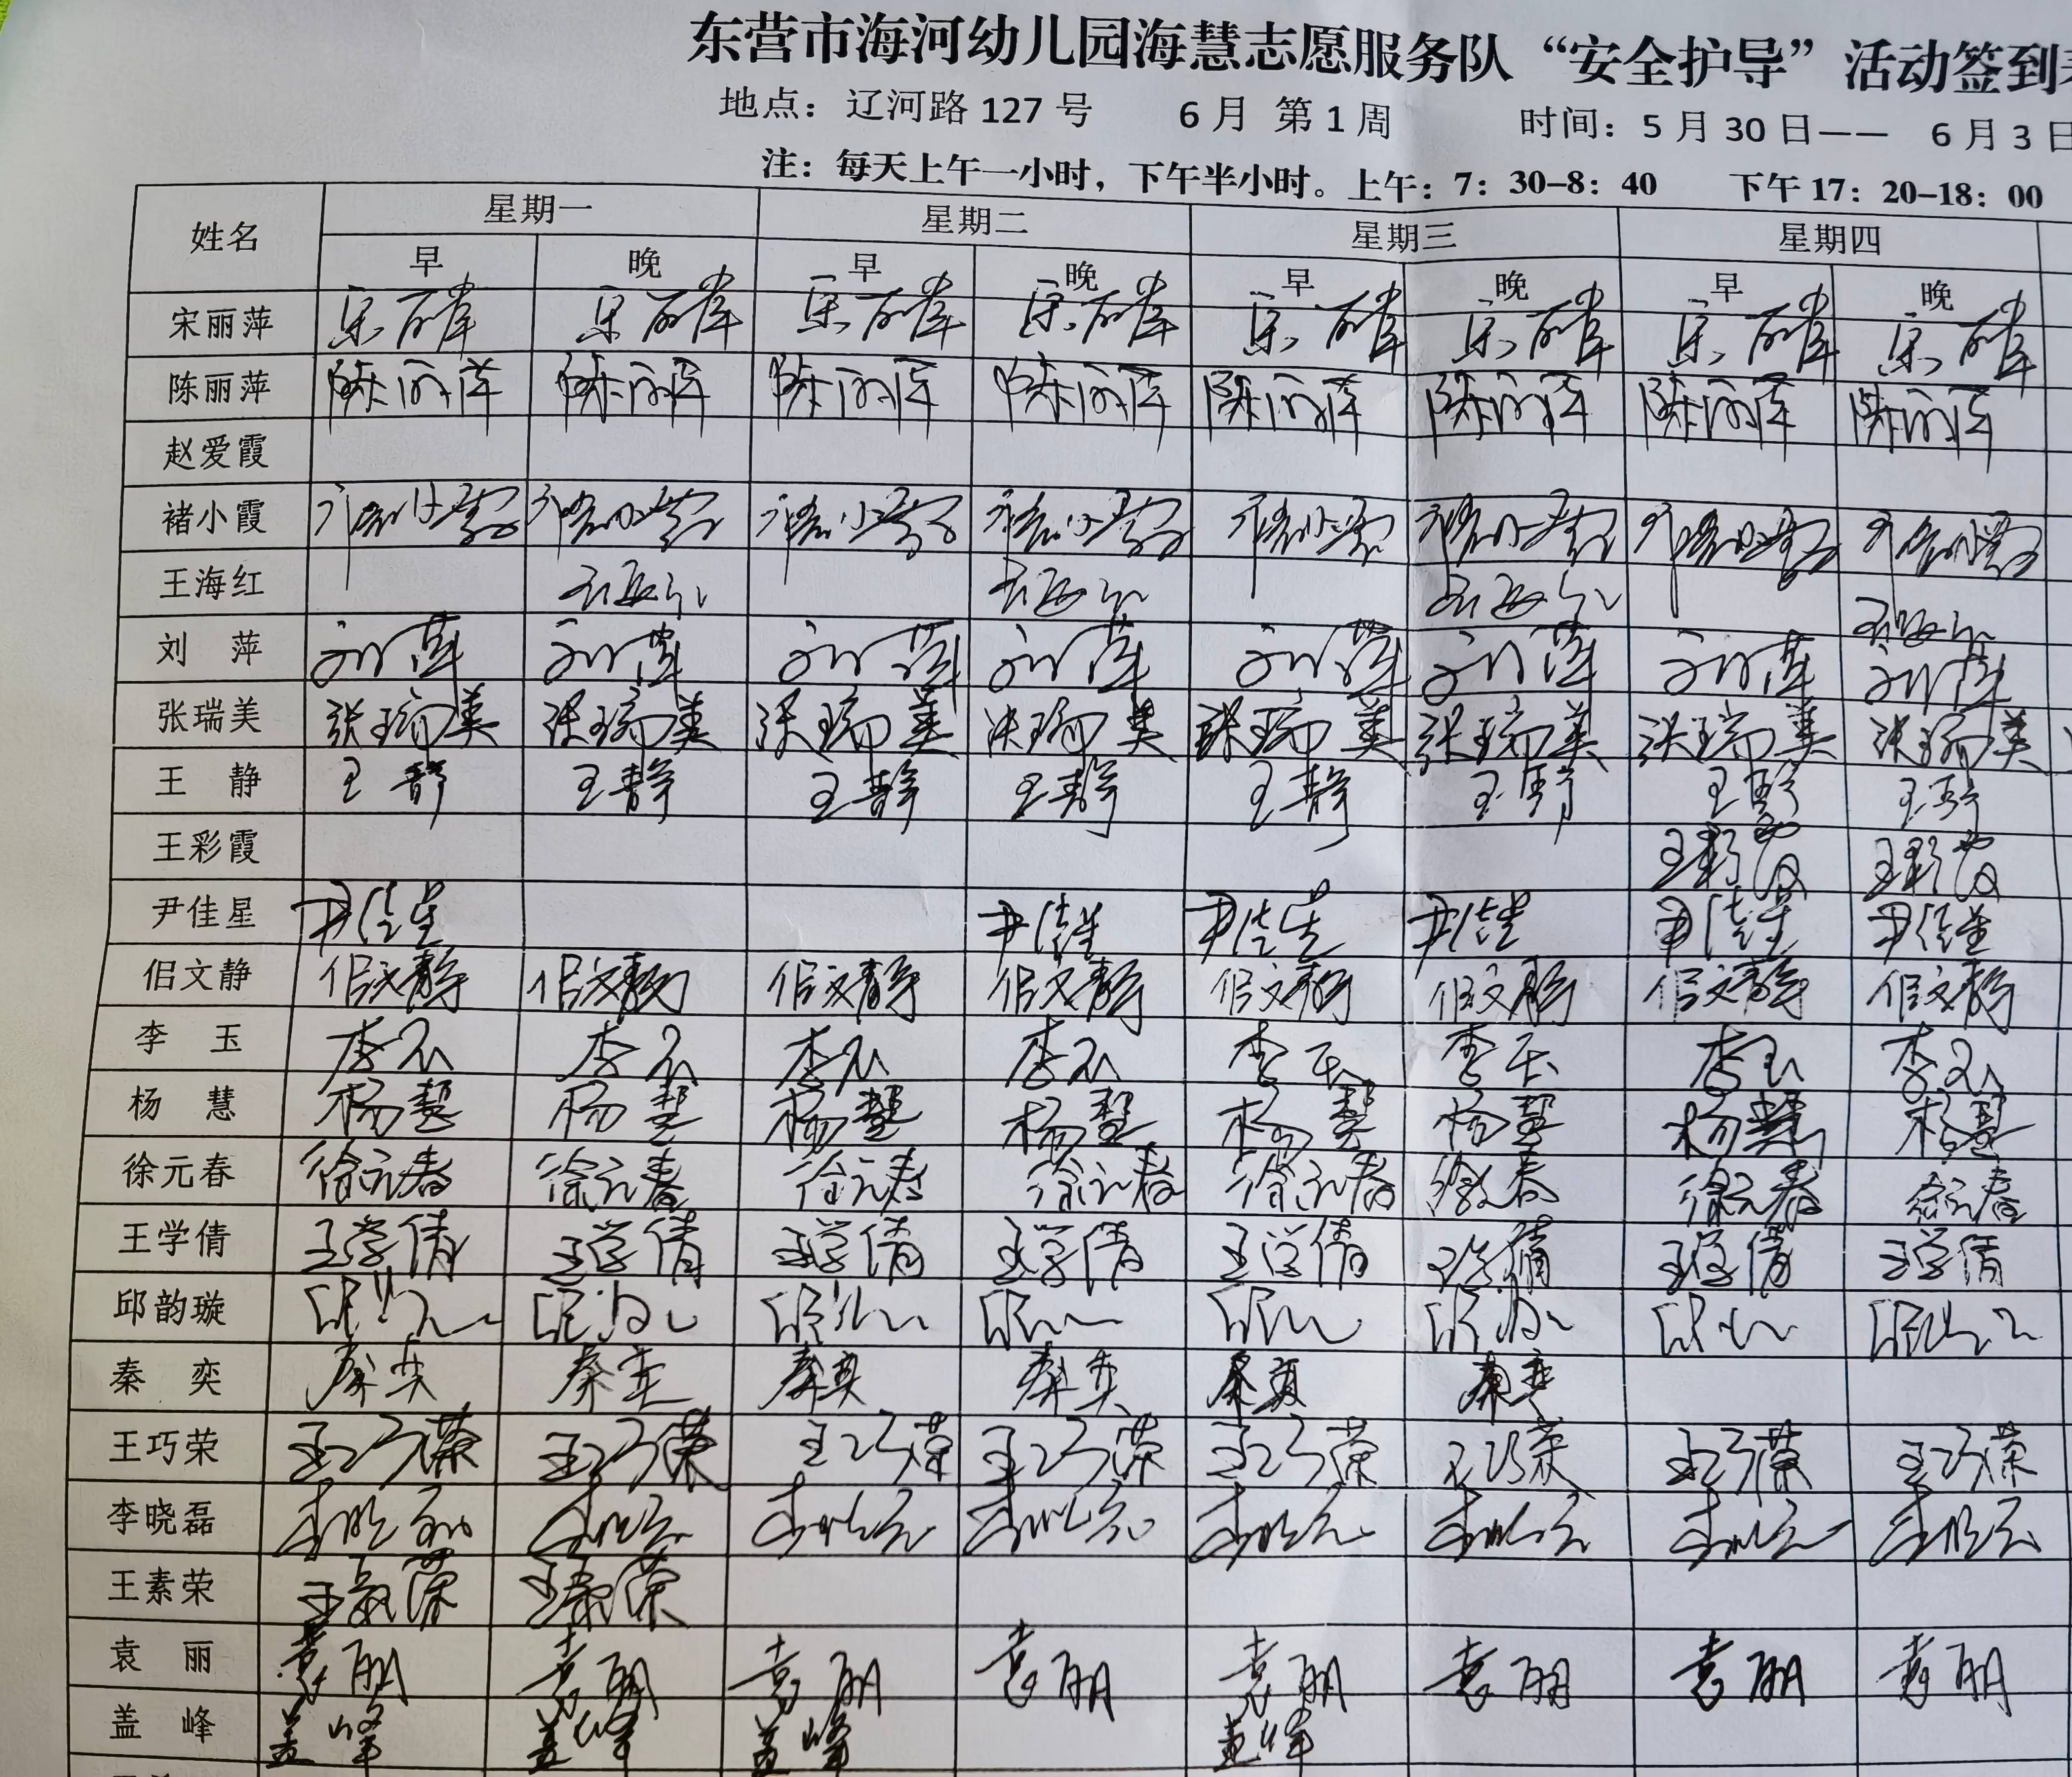 东营市海河幼儿园海慧志愿服务队“安全护导”活动签到
地点：辽河路 127 号 6 月 第 1 周 时间：5 月 30 日—— 6 月 3 日
注：每天上午一小时，下午半小时。上午：7：30-8：40 下午 17：20-18：00
姓名 星期一 星期二 星期三 星期四
早 晚 早 晚 早 晚 早 晚
宋丽萍 宋丽萍 宋丽萍 宋丽萍 宋丽萍 宋丽萍 宋丽萍 宋丽萍 宋丽萍
陈丽萍 陈丽萍 陈丽萍 陈丽萍 陈丽萍 陈丽萍 陈丽萍 陈丽萍 陈丽萍
赵爱霞
褚小霞 褚小霞 褚小霞 褚小霞 褚小霞 褚小霞 褚小霞 褚小霞 褚小霞
王海红 王海红 王海红 王海红 王海红
刘 萍 刘萍 刘萍 刘萍 刘萍 刘萍 刘萍 刘萍 刘萍
张瑞美 张瑞美 张瑞美 张瑞美 张瑞美 张瑞美 张瑞美 张瑞美 张瑞美
王 静 王静 王静 王静 王静 王静 王静 王静 王静
王彩霞 王彩霞 王彩霞
尹佳星 尹佳星 尹佳星 尹佳星 尹佳星 尹佳星 尹佳星
佀文静 佀文静 佀文静 佀文静 佀文静 佀文静 佀文静 佀文静 佀文静
李 玉 李玉 李玉 李玉 李玉 李玉 李玉 李玉 李玉
杨 慧 杨慧 杨慧 杨慧 杨慧 杨慧 杨慧 杨慧 杨慧
徐元春 徐元春 徐元春 徐元春 徐元春 徐元春 徐元春 徐元春 徐元春
王学倩 王学倩 王学倩 王学倩 王学倩 王学倩 王学倩 王学倩 王学倩
邱韵璇
秦 奕 秦奕 秦奕 秦奕 秦奕 秦奕 秦奕
王巧荣 王巧荣 王巧荣 王巧荣 王巧荣 王巧荣 王巧荣 王巧荣 王巧荣
李晓磊 李晓磊 李晓磊 李晓磊 李晓磊 李晓磊 李晓磊 李晓磊 李晓磊
王素荣 王素荣 王素荣
袁 丽 袁丽 袁丽 袁丽 袁丽 袁丽 袁丽 袁丽 袁丽
盖 峰 盖峰 盖峰 盖峰 盖峰